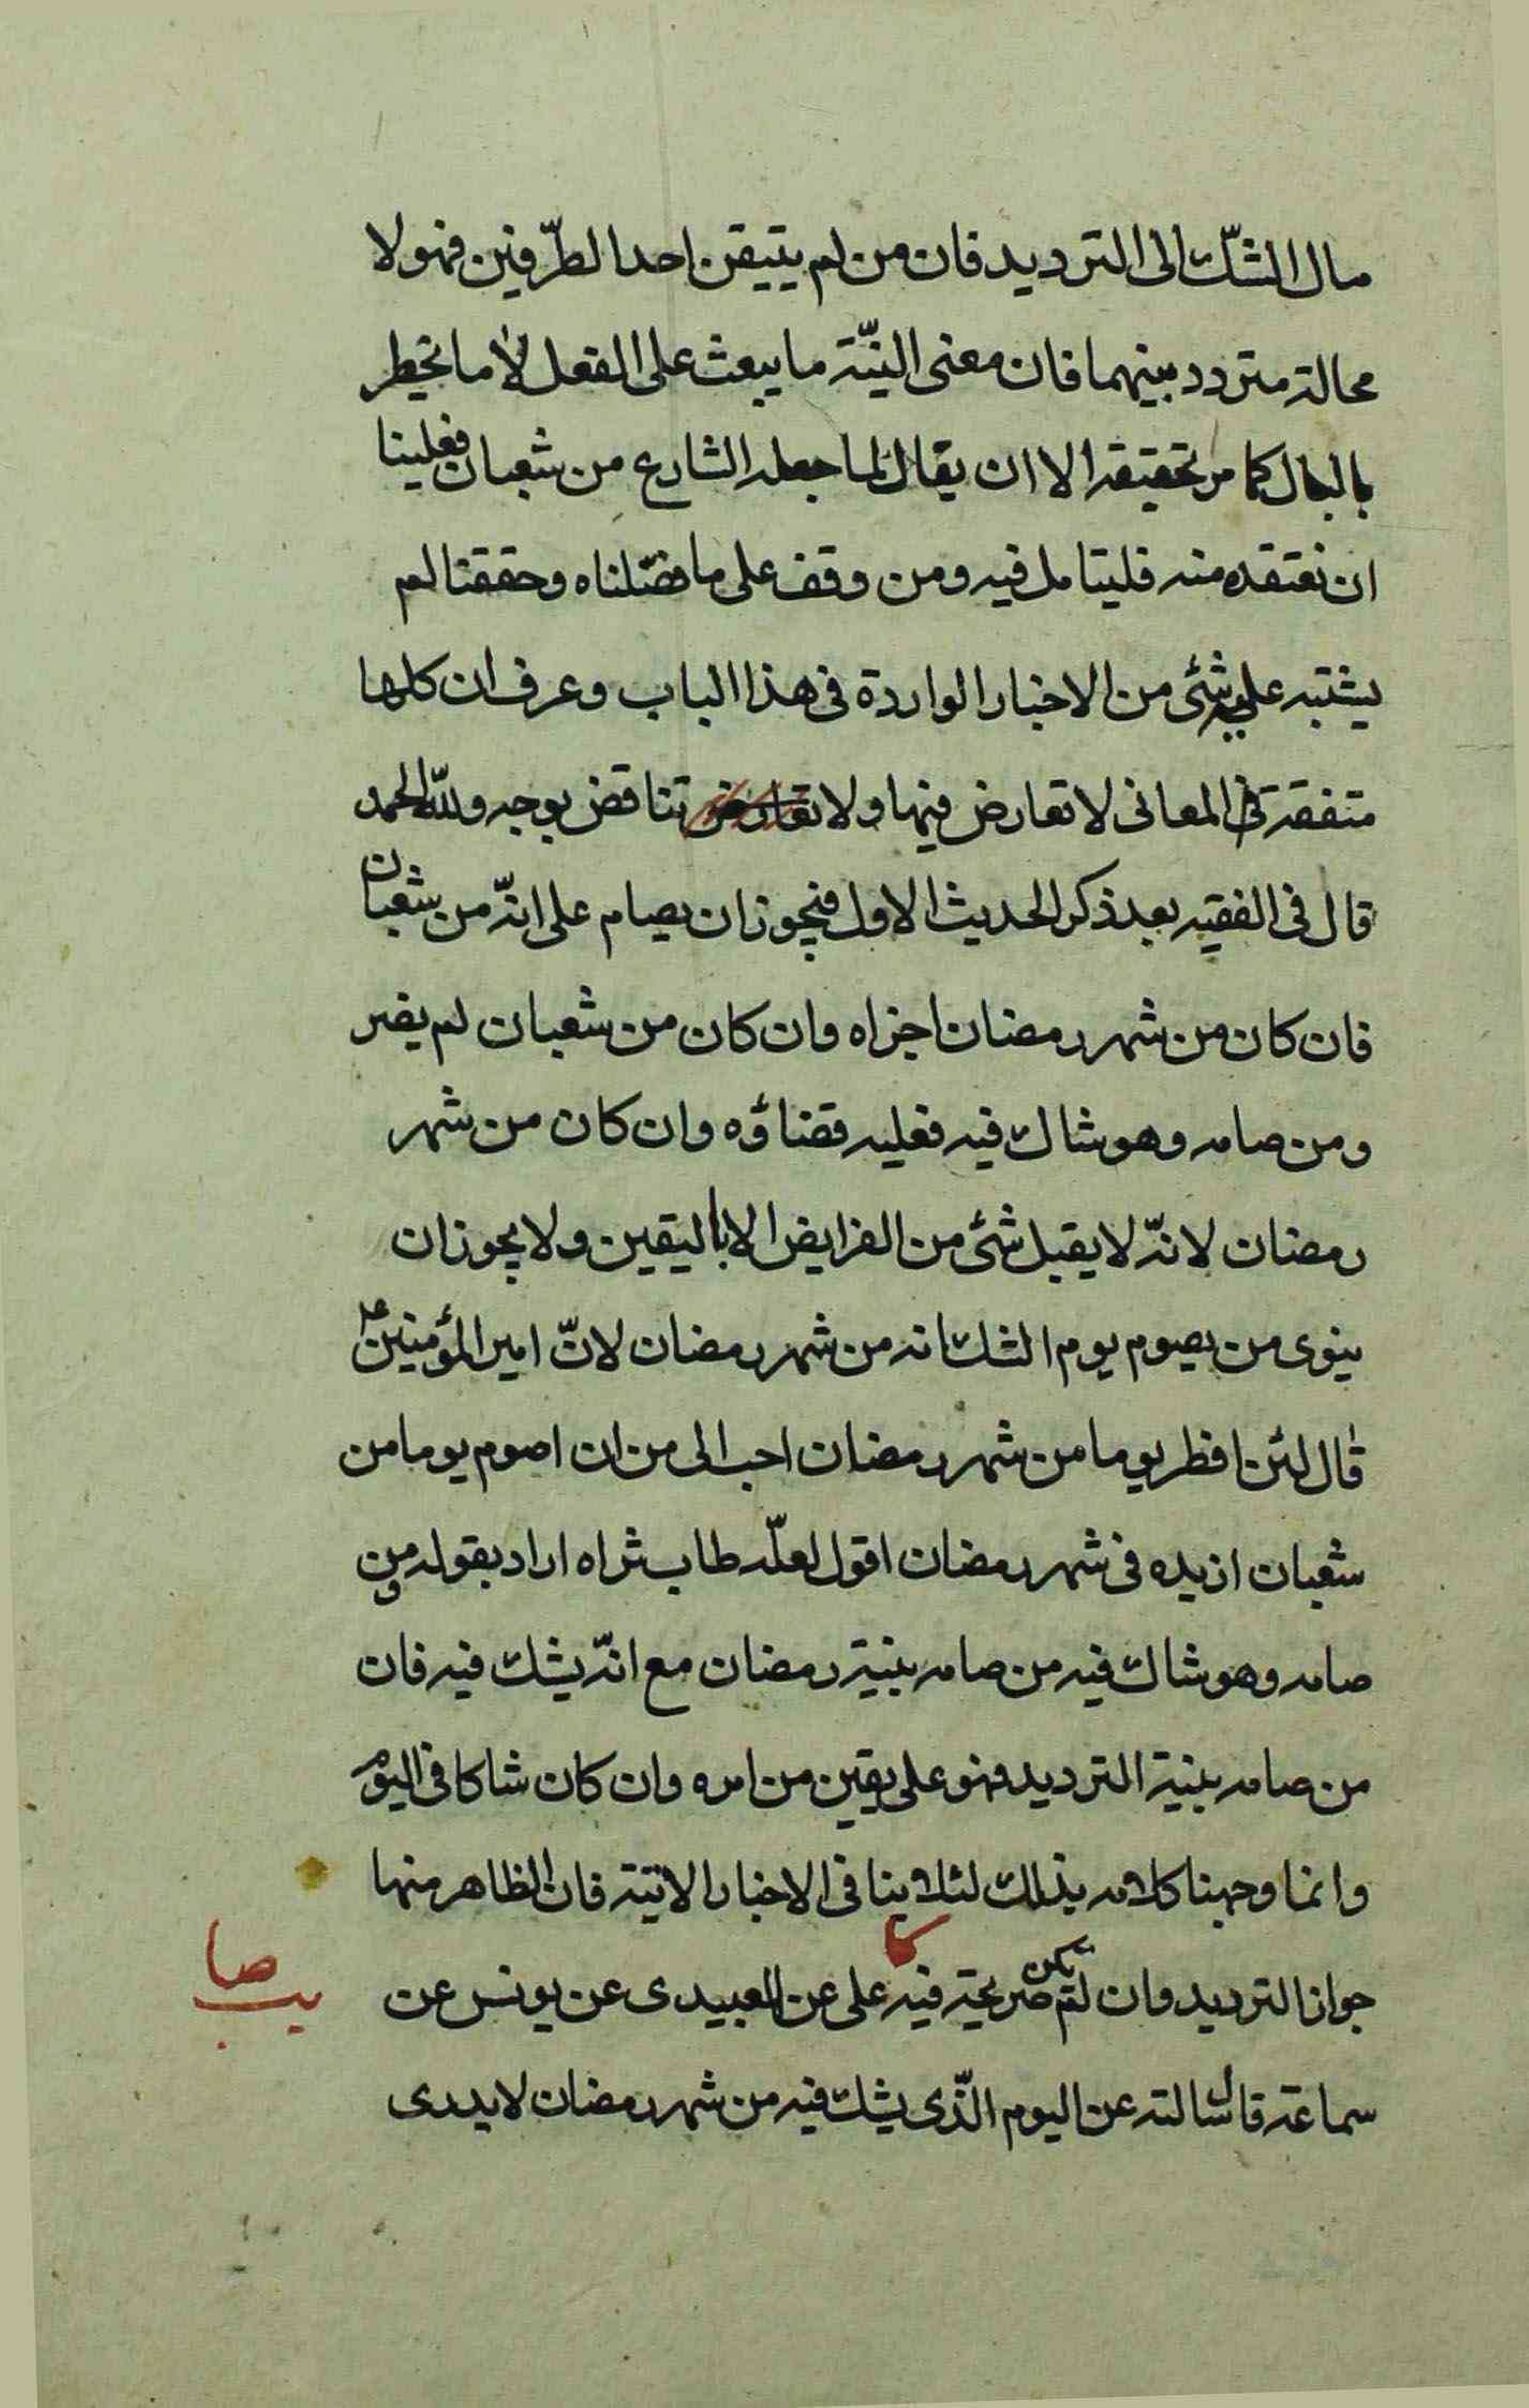 مال الشكّ الى الترديد فان من لم يتيقن احد الطرّفين فهو لا
محالة متردد بينهما فان معنى النيّة ما يبعث على الفعل لا ما يخطر
بالبال كما مر تحقيقه الا ان يقال لما جعله الشارع من شعبان فعلينا
ان نعتقده منه فليتامل فيه ومن وقف على ما فصّلناه وحققنا لم
يشتبه عليه شئ من الاخبار الواردة فى هذا الباب وعرف ان كلها
متفقة فى المعانى لا تعارض فيها ولا تعارض تناقض بوجه ولله الحمد
قال فى الفقيه بعد ذكر الحديث الاول فيجوز ان يصام على انّه من شعبان
فان كان من شهر رمضان اجزاه وان كان من شعبان لم يضر
ومن صامه وهو شاك فيه فعليه قضاؤه وان كان من شهر
رمضان لانّه لا يقبل شئ من الفرايض الا باليقين ولا يجوز ان
ينوى من يصوم يوم الشك انه من شهر رمضان لانّ امير المؤمنين ع
قال لئن افطر يوما من شهر رمضان احب الى من ان اصوم يوما من
شعبان ازيده فى شهر رمضان اقول لعلّه طاب ثراه اراد بقوله ومن
صامه وهو شاك فيه من صامه بنية رمضان مع انّه يشك فيه فان
من صامه بنية الترديد فهو على يقين من امره وان كان شاكا فى اليوم
وانما وجهنا كلامه بذلك لئلا ينافى الاخبار الاتية فان الظاهر منها
جواز الترديد وان لم تكن صريحة فيه كا على عن العبيدى عن يونس عن
صا
يب
سماعة قال سالته عن اليوم الذّى يشك فيه من شهر رمضان لا يدرى